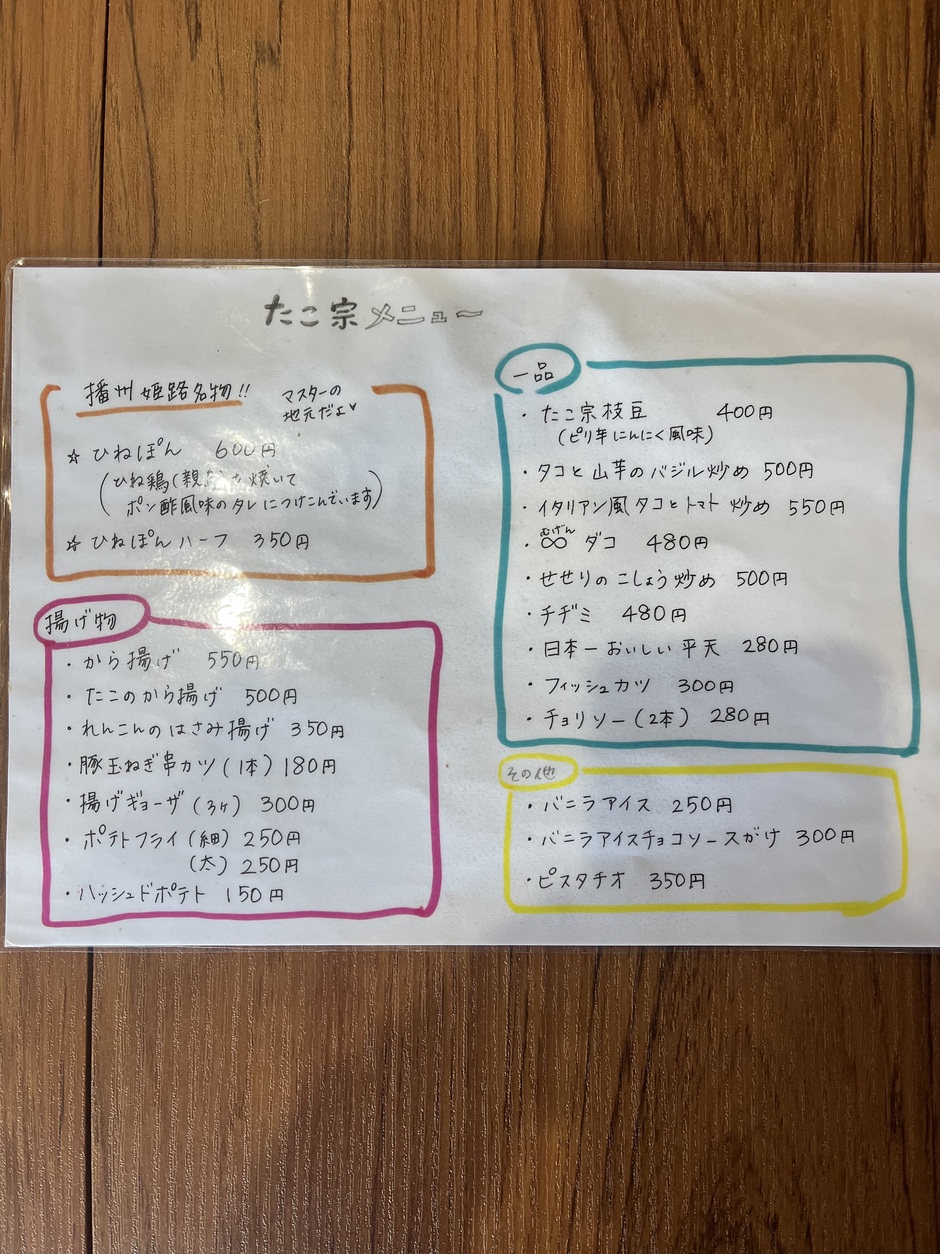 たこ宗メニュー
播州姫路名物!!
マスターの
地元だよ♥
☆ ひねぽん 600円
(ひね鶏(親 焼いて
ポン酢風味のタレにつけこんでいます)
☆ ひねぽんハーフ 350円
揚げ物
・から揚げ 550円
・たこのから揚げ 500円
・れんこんのはさみ揚げ 350円
・豚玉ねぎ串カツ(1本) 180円
・揚げギョーザ(3ヶ) 300円
・ポテトフライ(細) 250円
(太) 250円
・ハッシュドポテト 150円
一品
・たこ宗枝豆 400円
(ピリ辛にんにく風味)
・タコと山芋のバジル炒め 500円
・イタリアン風タコとトマト炒め 550円
むげん
・∞ダコ 480円
・せせりのこしょう炒め 500円
・チヂミ 480円
・日本一おいしい平天 280円
・フィッシュカツ 300円
・チョリソー(2本) 280円
その他
・バニラアイス 250円
・バニラアイスチョコソースがけ 300円
・ピスタチオ 350円